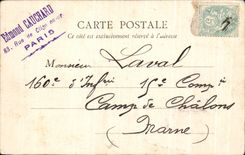 Edmond CAUCHARD
83, Rue
PARIS
CARTE POSTALE
Ce côté est exclusivement réservé à l'adresse
Monsieur Laval
160e d'Infrie 15e Comp.
Camp de Châlons
(Marne)